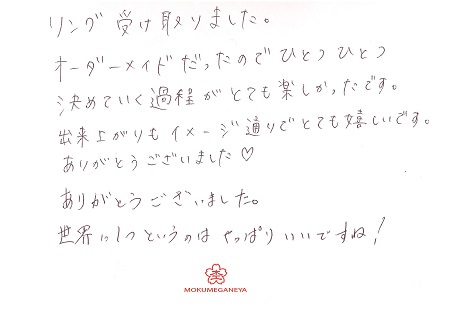 リング受け取りました。
オーダーメイドだったのでひとつひとつ
決めていく過程がとても楽しかったです。
出来上がりもイメージ通りでとても嬉しいです。
ありがとうございました♡
ありがとうございました。
世界に1つというのはやっぱりいいですね!
MOKUMEGANEYA